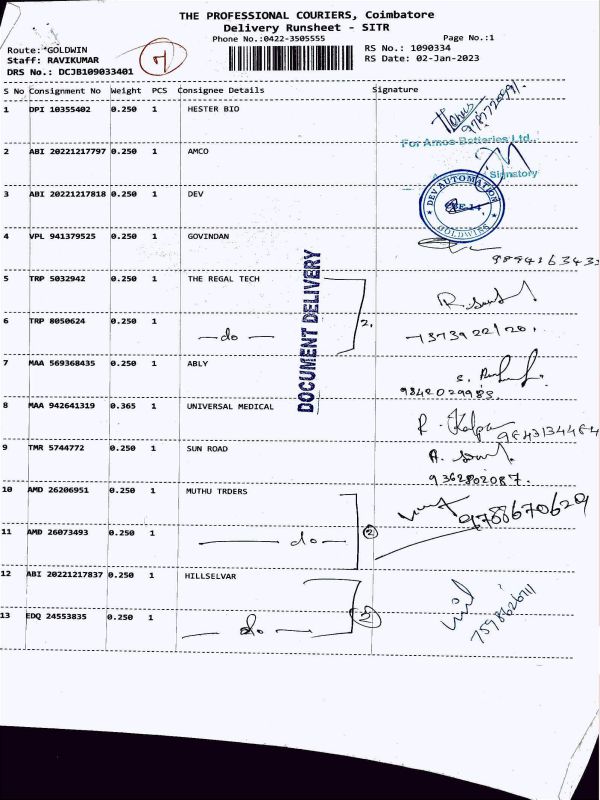 THE PROFESSIONAL COURIERS, Coimbatore
Delivery Runsheet - SITR
Phone No.:0422-3505555 Page No.:1
Route: GOLDWIN RS No.: 1090334
Staff: RAVIKUMAR RS Date: 02-Jan-2023
DRS No.: DCJB109033401
S No Consignment No Weight PCS Consignee Details Signature
1 DPI 10355402 0.250 1 HESTER BIO
For Amos Batteries Ltd.,
2 ABI 20221217797 0.250 1 AMCO
Signatory
3 ABI 20221217818 0.250 1 DEV
DEV AUTOMATION
GOLDWINS
4 VPL 941379525 0.250 1 GOVINDAN
DOCUMENT DELIVERY
5 TRP 5032942 0.250 1 THE REGAL TECH
2.
6 TRP 8050624 0.250 1 — do —
7 MAA 569368435 0.250 1 ABLY
9842029983
8 MAA 942641319 0.365 1 UNIVERSAL MEDICAL
R. Kalpa
9 TMR 5744772 0.250 1 SUN ROAD
9362802087.
10 AMD 26206951 0.250 1 MUTHU TRDERS
9788670629
11 AMD 26073493 0.250 1 — do — 2
12 ABI 20221217837 0.250 1 HILLSELVAR
13 EDQ 24553835 0.250 1 — do —